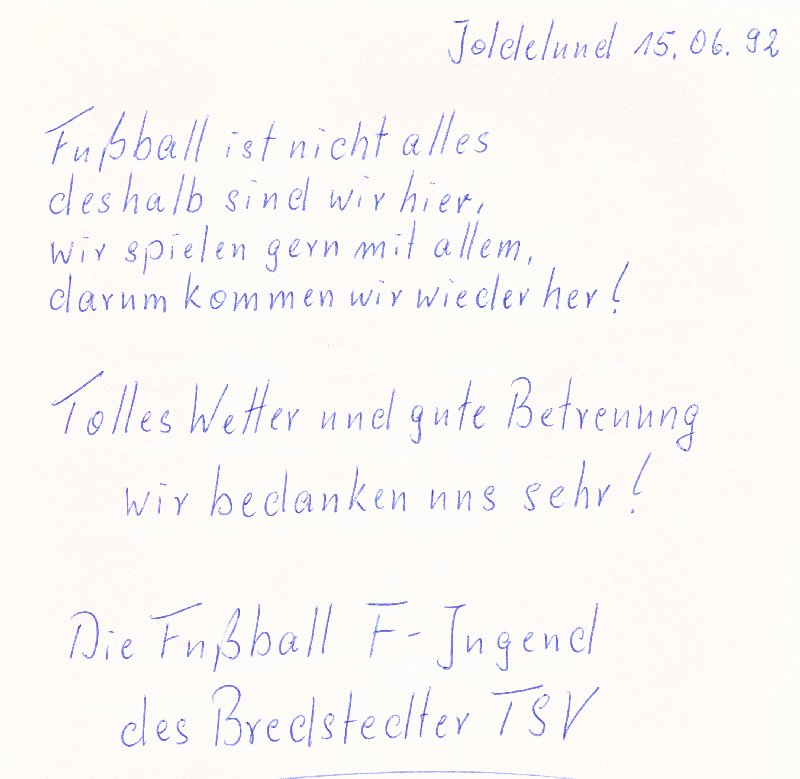 Joldelund 15.06.92
Fußball ist nicht alles
deshalb sind wir hier,
wir spielen gern mit allem,
darum kommen wir wieder her!
Tolles Wetter und gute Betreuung
wir bedanken uns sehr!
Die Fußball F-Jugend
des Bredstedter TSV